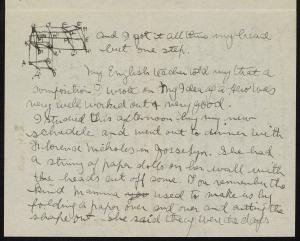 and I got it all thro my head
but one step.
My English teacher told my that a
composition I wrote on My Idea of a
very well worked out & very good.
I studied this afternoon by my new
schedule and went out to dinner with
Florence Nichols in Josselyn. She had
a string of paper dolls on her wall with
the heads cut off some. You remember the
kind Mamma used to make us by
folding a paper over and over and cutting the
shape out. She said they were its days